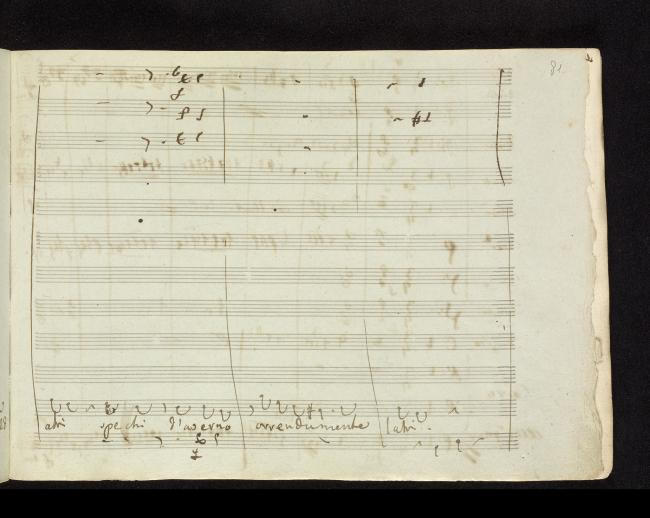 81
atri spechi d'averno orrendamente latri.